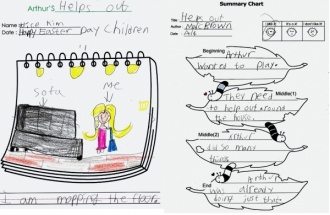 Arthur's Helps out
Name:
Date: Happy Easter Day Children
sofa
me
I am mopping the floor.
Summary Chart
Title Helps out
Author Marc Brown
Date
Beginning
Arthur
Wanted to play.
They need
Middle(1)
to help out around
the house.
Middle(2)
Arthur
did so many
things
End
Arthur
was already
doing just that.